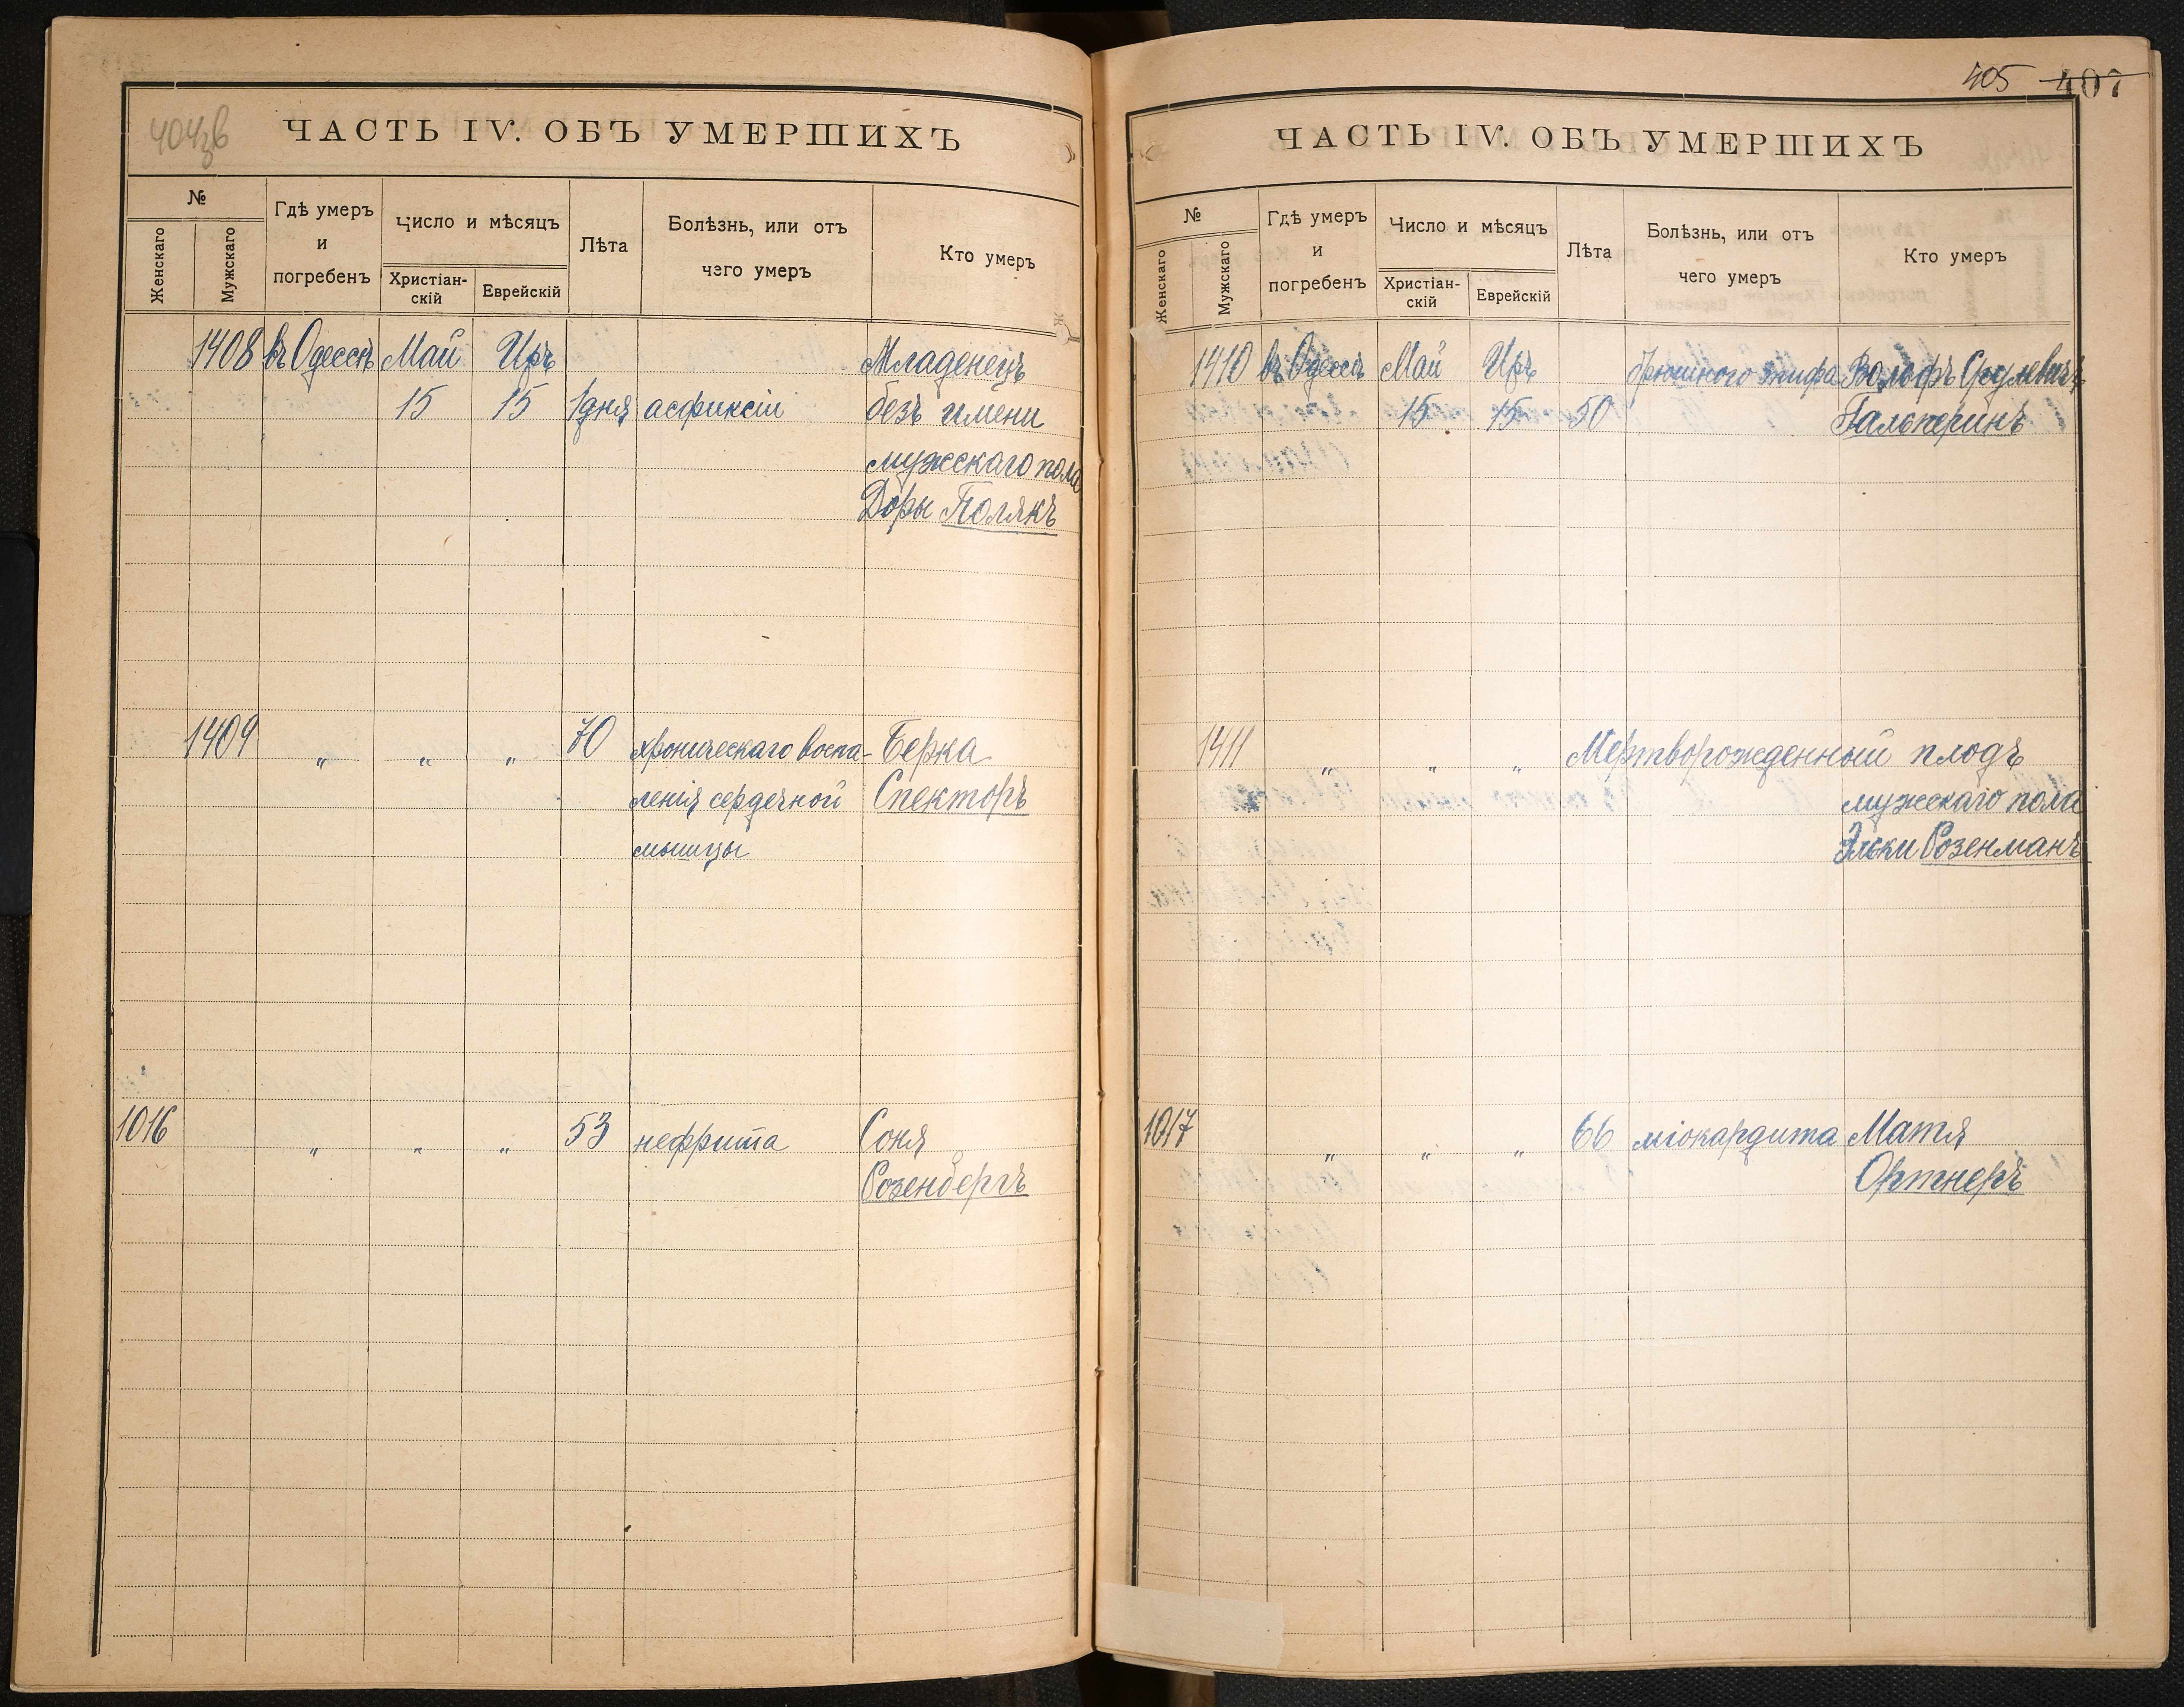 404зв
ЧАСТЬ IV. ОБЪ УМЕРШИХЪ
№
Женскаго
Мужскаго
Гдѣ умеръ
и
погребенъ
Число и мѣсяцъ
Христіан-
скій
Еврейскій
Лѣта
Болѣзнь, или отъ
чего умеръ
Кто умеръ
1408 въ Одессѣ Май Иръ Младенецъ
15 15 1 дня асфиксіи безъ имени
мужскаго пола
Доры Полякъ
1409 " " " 70 хроническаго воспа- Берка
ленія сердечной Спекторъ
мышцы
1016 " " " 53 нефрита Соня
Розенбергъ
405 407
ЧАСТЬ IV. ОБЪ УМЕРШИХЪ
№
Женскаго
Мужскаго
Гдѣ умеръ
и
погребенъ
Число и мѣсяцъ
Христіан-
скій
Еврейскій
Лѣта
Болѣзнь, или отъ
чего умеръ
Кто умеръ
1410 въ Одессѣ Май Иръ брюшного тифа Вольфъ
15 15 50 Гальперинъ
1411 " " " Мертворожденный плодъ
мужскаго пола
Эльки Розенманъ
1017 " " " 66 міокардита Матя
Ортнеръ